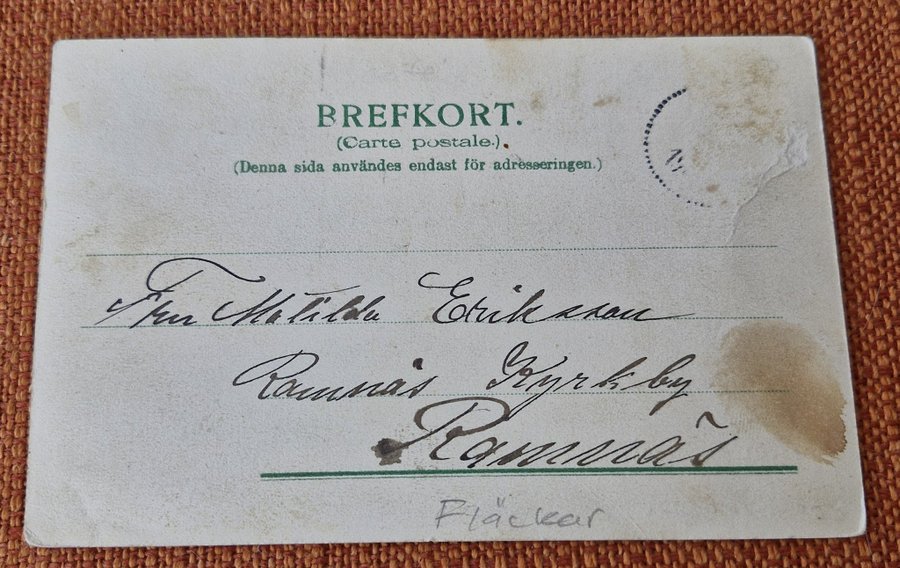 BREFKORT.
(Carte postale.)
(Denna sida användes endast för adresseringen.)
Fru Matilda Eriksson
Ramnäs Kyrkby
Ramnäs
Fläckar